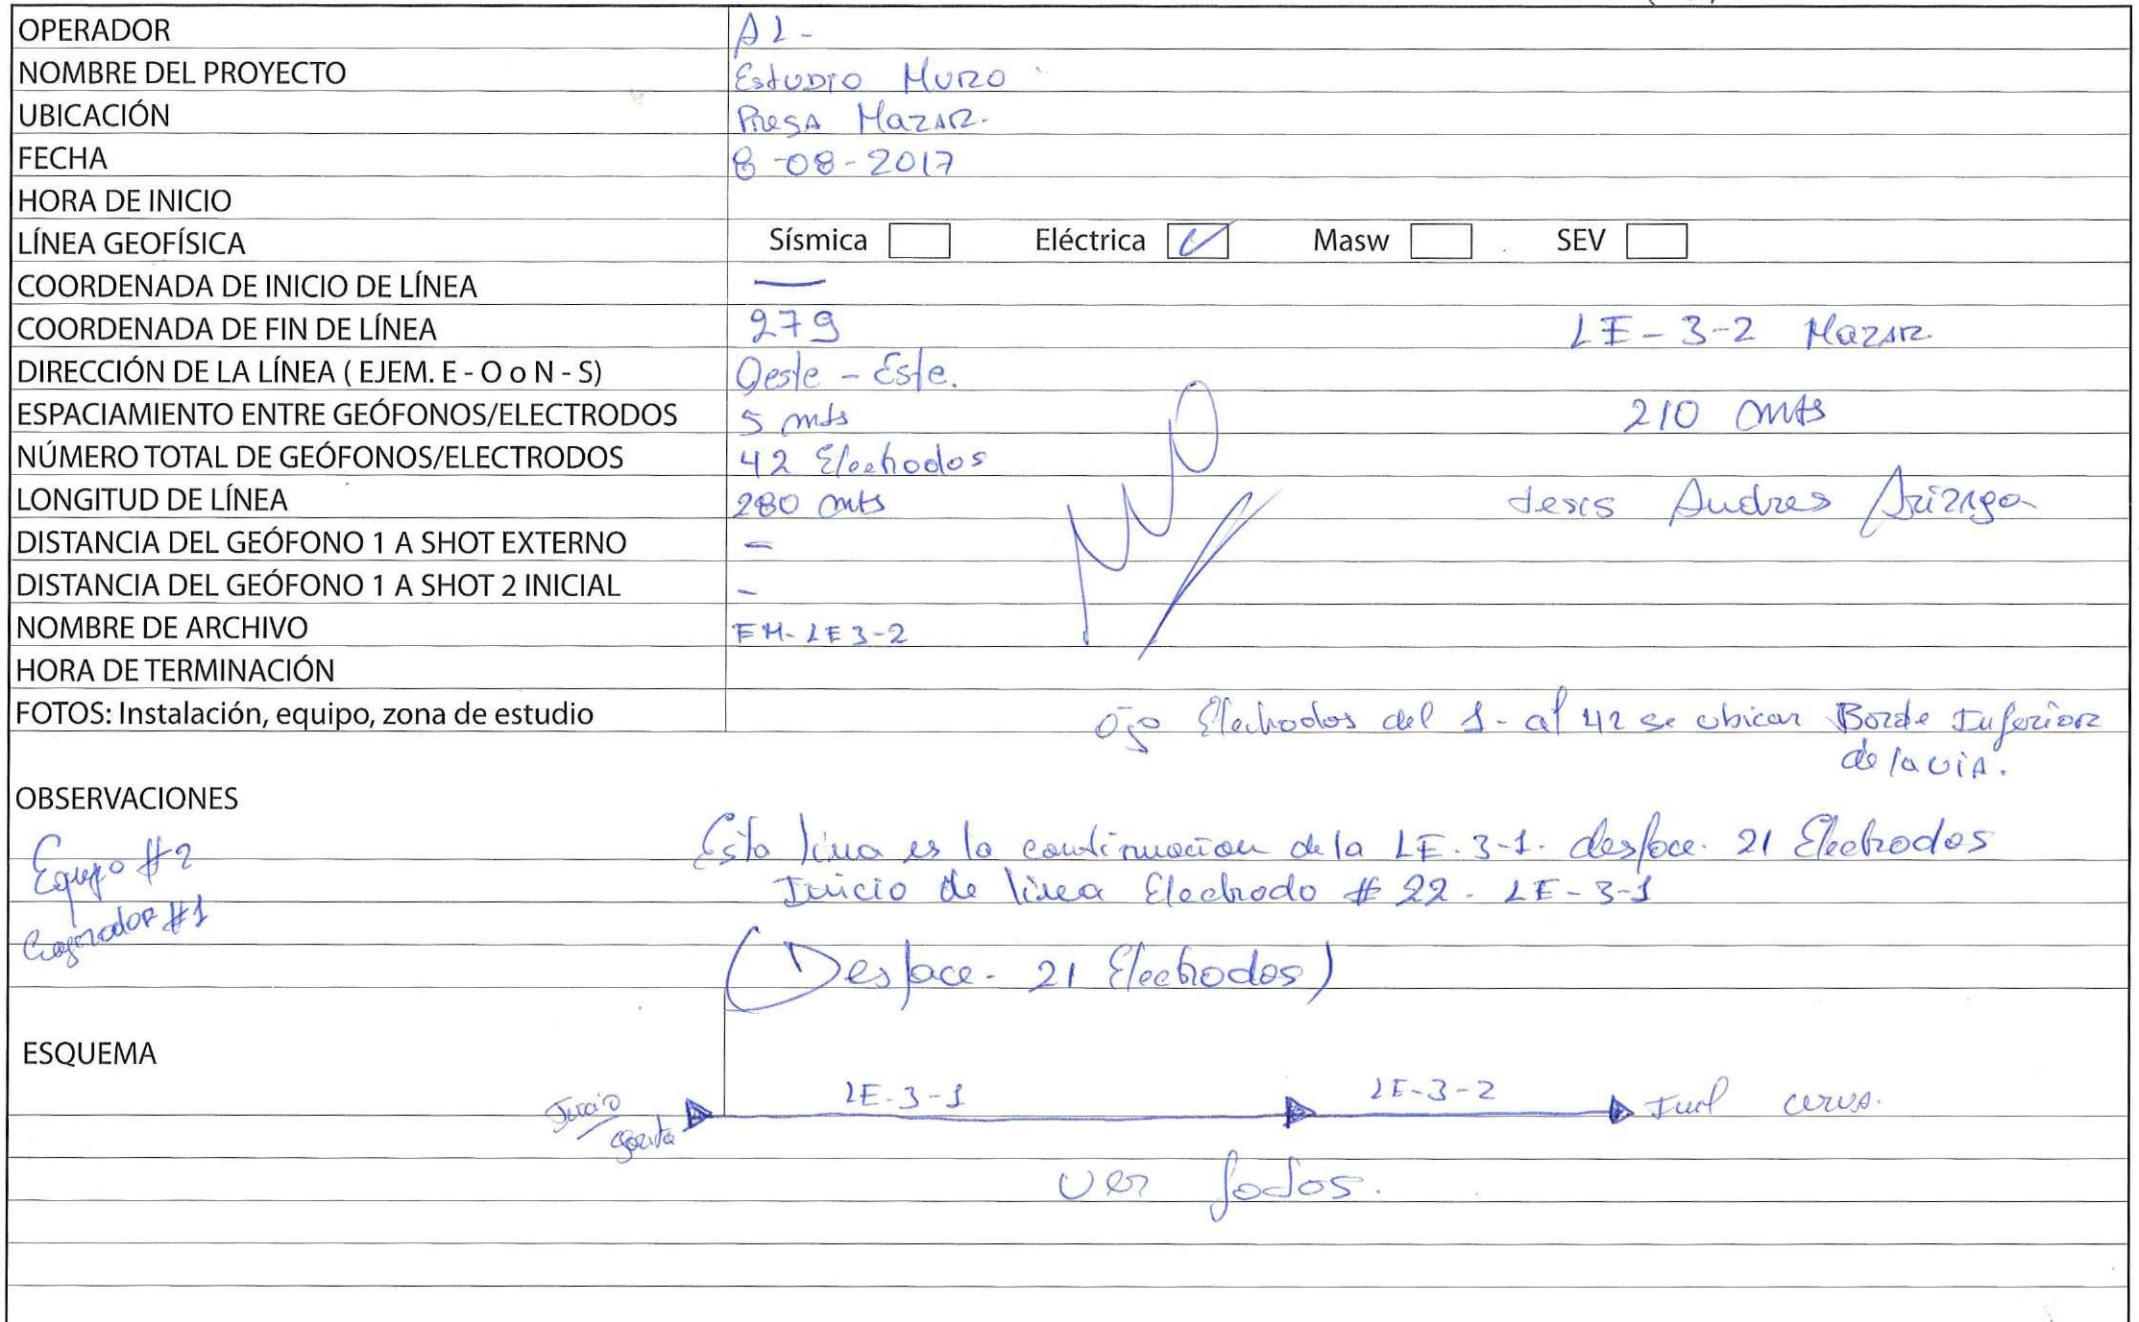 OPERADOR AL-
NOMBRE DEL PROYECTO Estudio Muro
UBICACIÓN Presa Mazar.
FECHA 8-08-2017
HORA DE INICIO
LÍNEA GEOFÍSICA Sísmica Eléctrica Masw SEV
COORDENADA DE INICIO DE LÍNEA —
COORDENADA DE FIN DE LÍNEA 279 LE-3-2 Mazar.
DIRECCIÓN DE LA LÍNEA ( EJEM. E - O o N - S) Oeste - Este.
ESPACIAMIENTO ENTRE GEÓFONOS/ELECTRODOS 5 mts 210 mts
NÚMERO TOTAL DE GEÓFONOS/ELECTRODOS 42 Electrodos
LONGITUD DE LÍNEA 280 mts tesis Andres Arizaga
DISTANCIA DEL GEÓFONO 1 A SHOT EXTERNO -
DISTANCIA DEL GEÓFONO 1 A SHOT 2 INICIAL -
NOMBRE DE ARCHIVO EM-LE3-2
HORA DE TERMINACIÓN
FOTOS: Instalación, equipo, zona de estudio
Ojo Electrodos del 1- al 42 se ubican Borde Inferior
de la via.
OBSERVACIONES
Equipo #2
#1
Esta linea es la continuacion de la LE.3-1. desface. 21 Electrodos
Inicio de linea Electrodo # 22 - LE-3-1
(Desface- 21 Electrodos)
ESQUEMA
Inicio
garita
LE-3-1
LE-3-2
curva.
ver fotos.